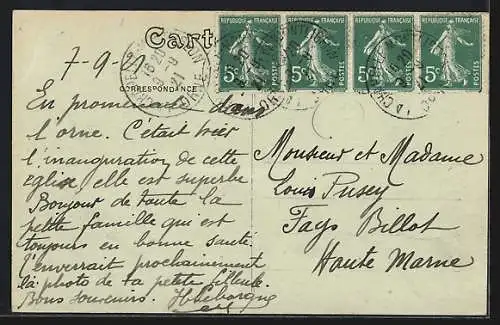 Carte
REPUBLIQUE FRANÇAISE REPUBLIQUE FRANÇAISE REPUBLIQUE FRANÇAISE REPUBLIQUE FRANÇAISE
5c POSTES 5c POSTES 5c POSTES 5c POSTES
7-9-21
CORRESPONDANCE
En promenade dans
l'orne. C'était hier
l'inauguration de cette
Eglise elle est superbe
Bonjour de toute la
petite famille qui est
toujours en bonne santé
J'enverrait prochainement
la photo de ta petite filleule.
Bons souvenirs.
Monsieur et Madame
Louis Pusey
Fays Billot
Haute Marne